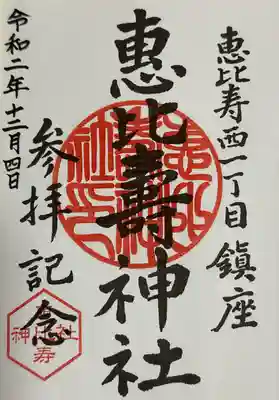 恵比寿西一丁目鎮座
恵比壽神社
参拝記念
令和二年十二月四日